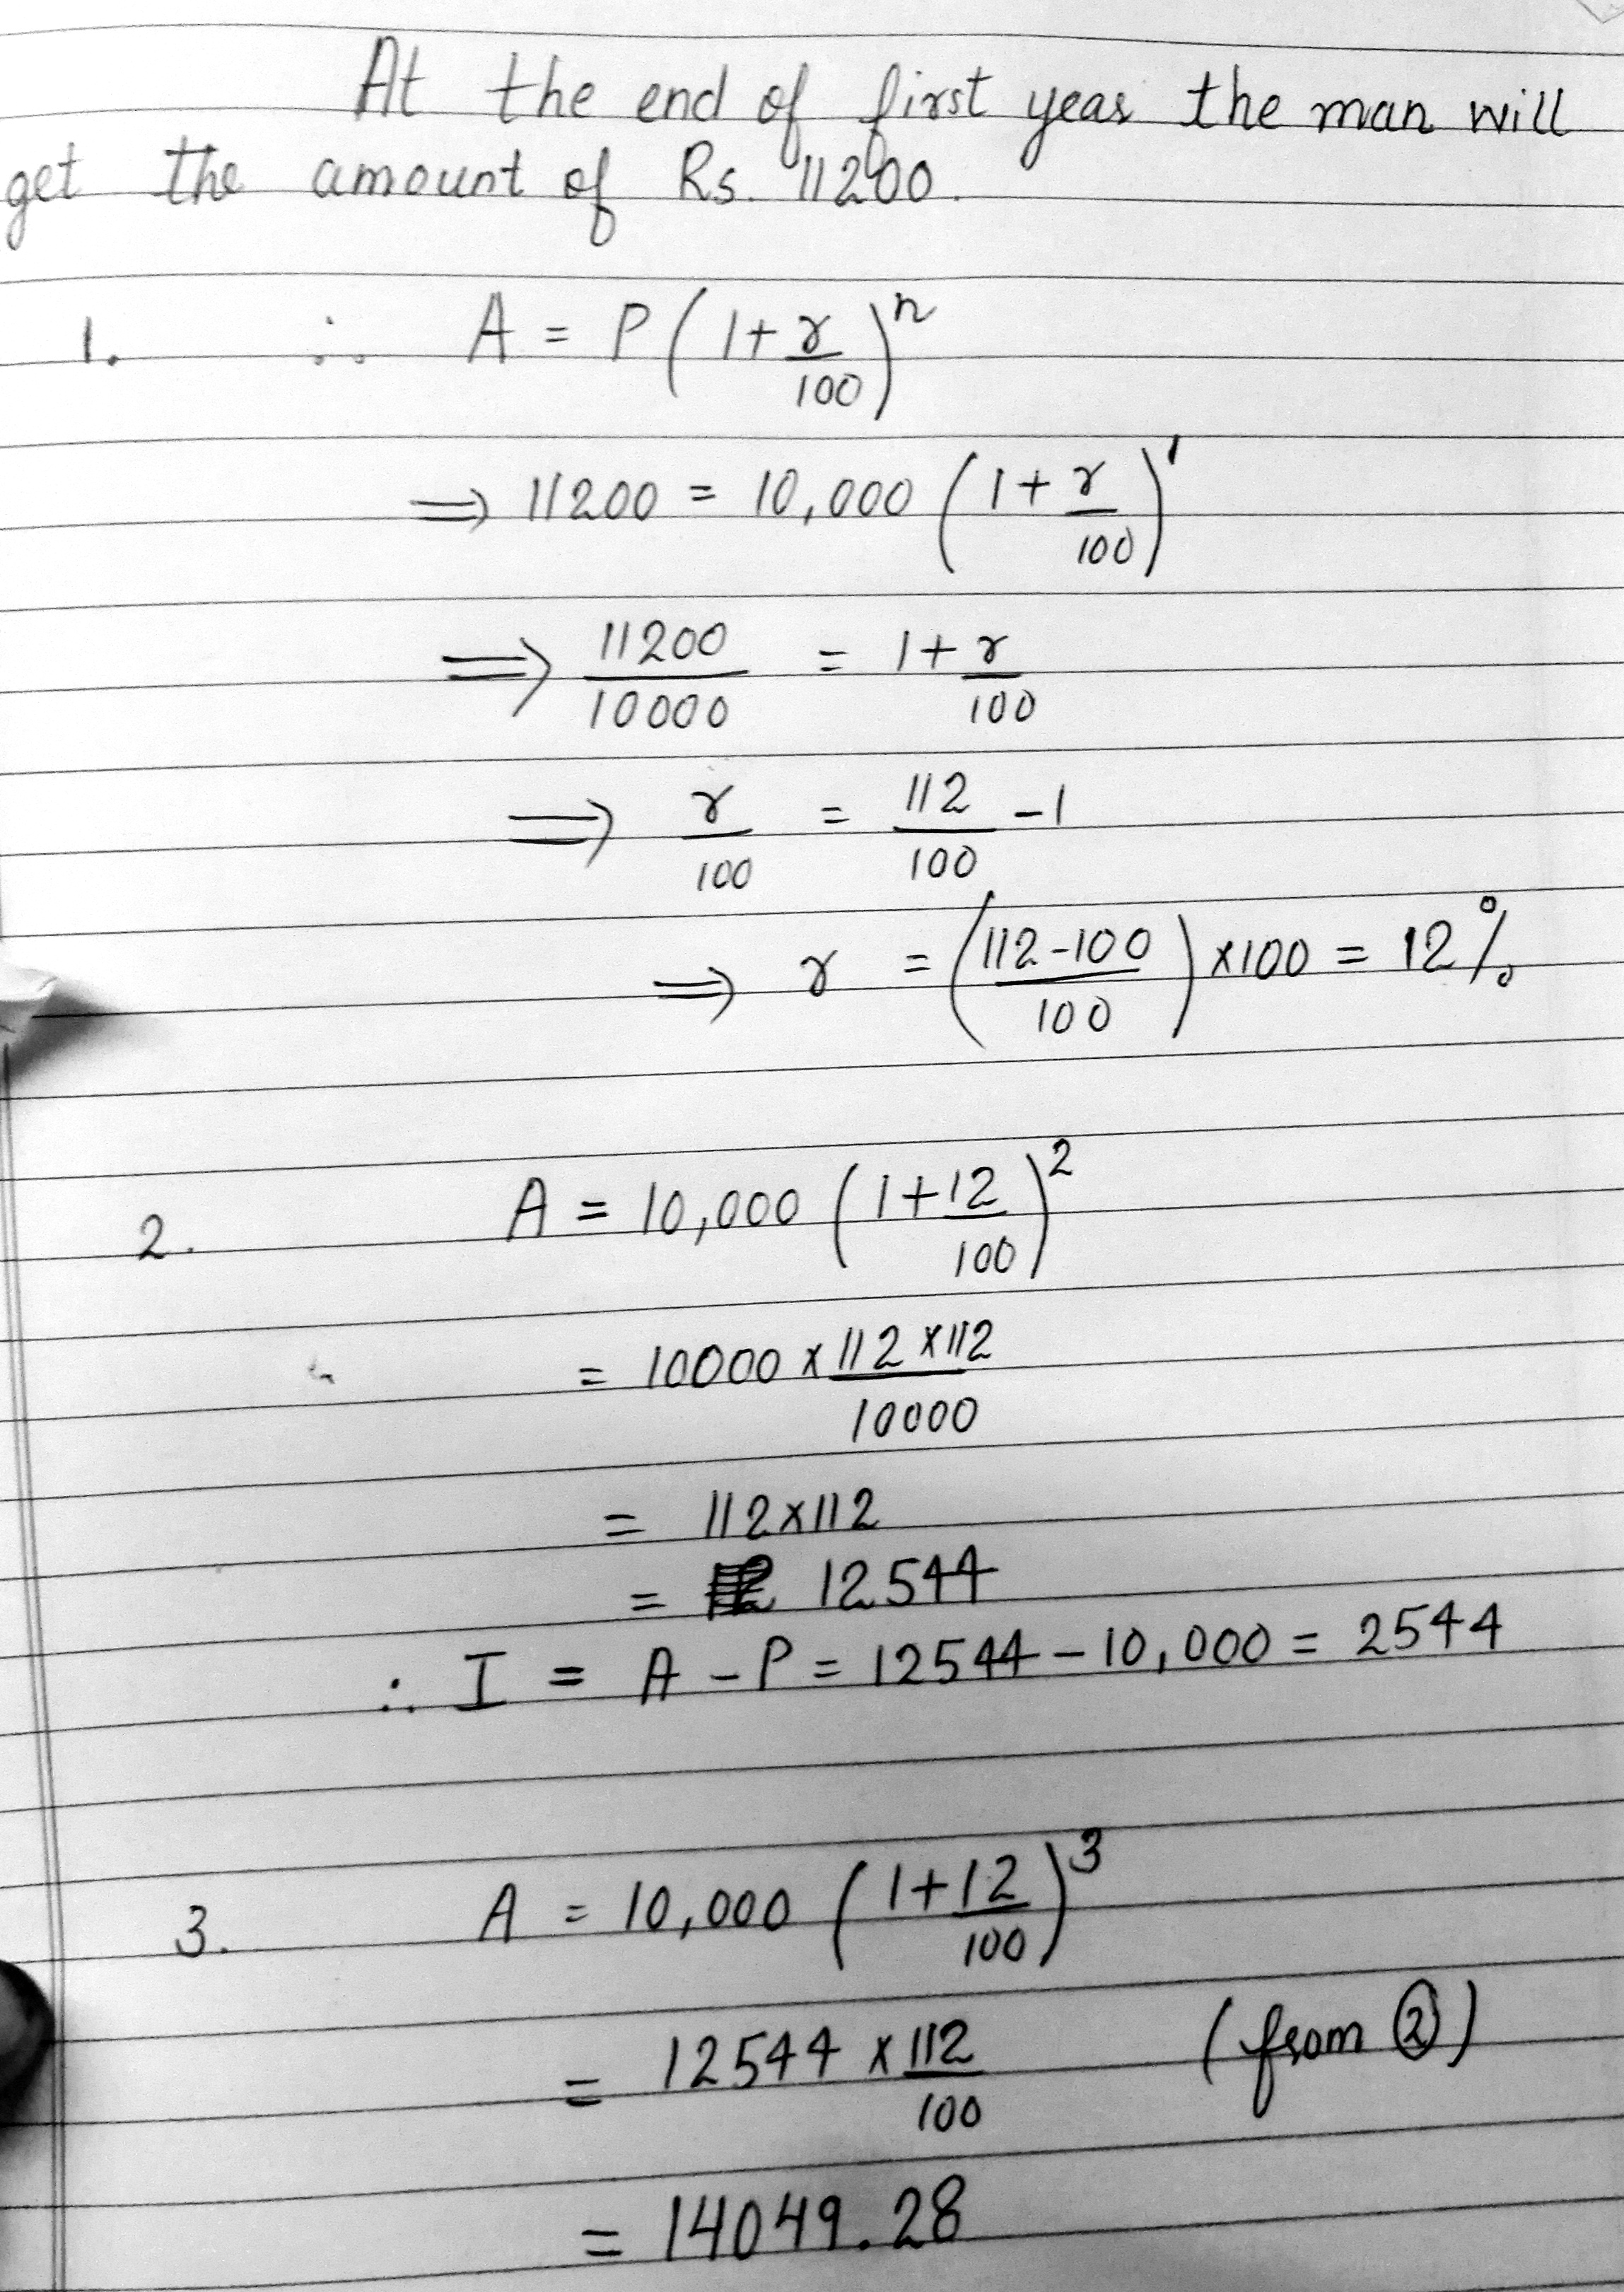 At the end of first year the man will
get the amount of Rs. 11200.
1. ∴ A = P(1+r/100)^n
⇒ 11200 = 10,000 (1+r/100)^1
⇒ 11200/10000 = 1+r/100
⇒ r/100 = 112/100 - 1
⇒ r = (112-100/100) x100 = 12%
2. A = 10,000 (1+12/100)^2
= 10000 x 112 x112/10000
= 112x112
= 12544
∴ I = A - P = 12544 - 10,000 = 2544
3. A = 10,000 (1+12/100)^3
= 12544 x 112/100 (from ②)
= 14049.28